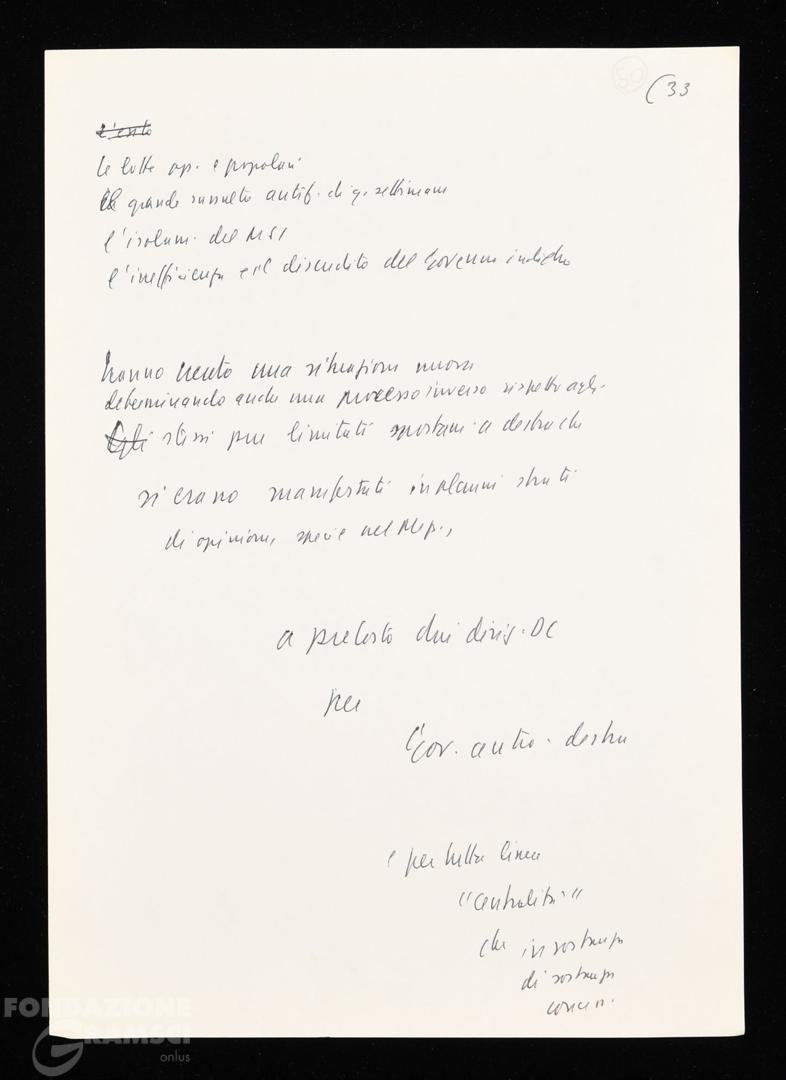 50
(33
L'esito
le lotte op. e popolari
il grande sussulto antif. di q. settimane
l'isolam. del MSI
l'inefficienza e il discredito del Governo
hanno creato una situazione nuova
determinando anche una processo inverso rispetto agli
Agli stessi pur limitati spostam. a destra che
si erano manifestati in alcuni strati
di opinione, specie nel
a pretesto dai dirig. DC
per
Gov. centro-destra
e per tutta linea
"centralità"
che in sostanza
di sostanza
FONDAZIONE
GRAMSCI
onlus